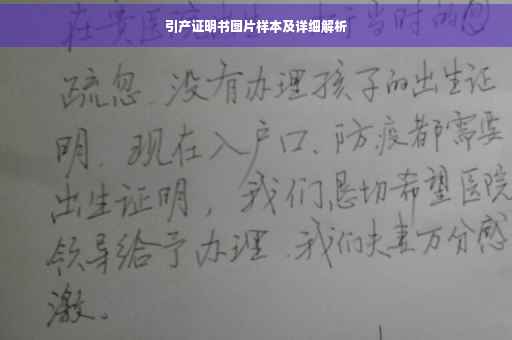 引产证明书图片样本及详细解析
在贵医院出生,由于当时的
疏忽,没有办理孩子的出生证
明.现在入户口、防疫都需要
出生证明,我们恳切希望医院
领导给予办理.我们夫妻万分感
激。